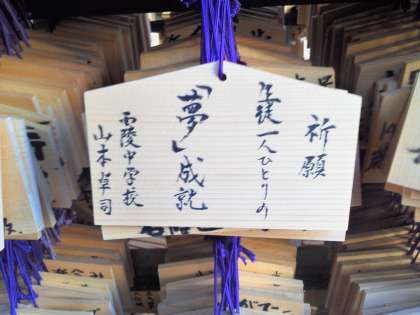 祈願
生徒一人ひとりの
「夢」成就
西陵中学校
山本卓司